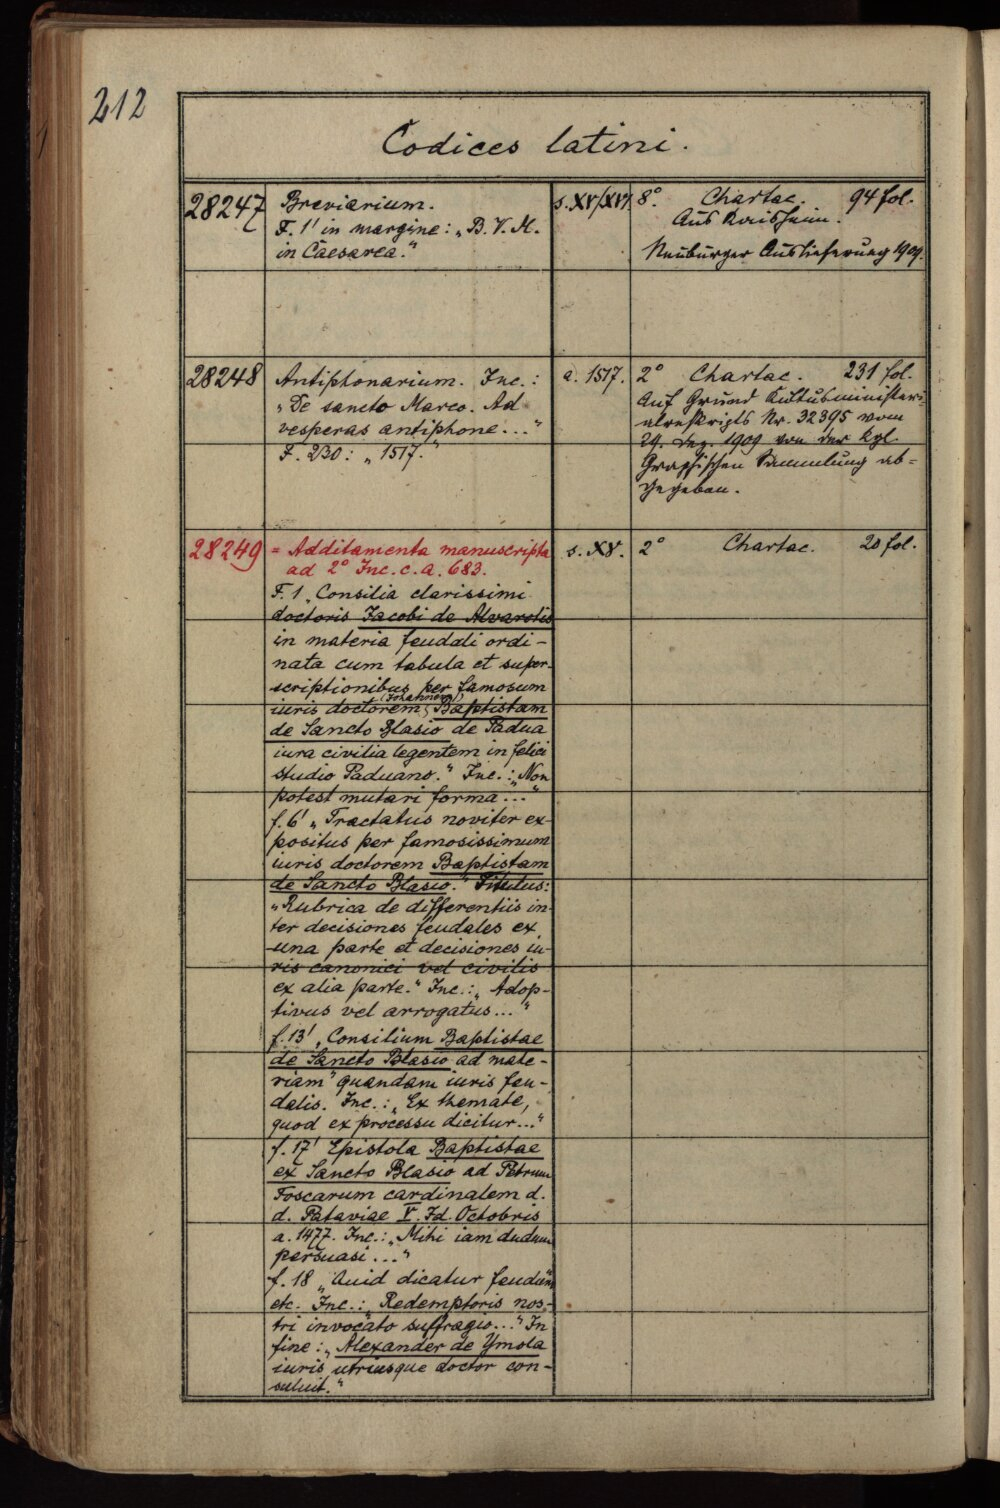 212
Codices latini.
28247
Breviarium.
F. 1' in margine: „B. V. M.
in Caesarea.“
s. XV/XVI
8° Chartac. 94 fol.
Aus Kaisheim.
Neuburger Auslieferung 1909.
28248
Antiphonarium. Inc.:
„De sancto Marco. Ad
vesperas antiphone...“
F. 230: „1517.“
a. 1517.
2° Chartac. 231 fol.
Auf Grund Kultusministeri-
alreskripts Nr. 32395 vom
29. Dez. 1909 von der kgl.
Graphischen Sammlung ab-
gegeben.
28249
= Additamenta manuscripta
ad 2° Inc. c. a. 683.
F. 1 „Consilia clarissimi
doctoris Jacobi de Alvarotis
in materia feudali ordi-
nata cum tabula et super-
scriptionibus per famosum
iuris doctorem (Johannem) Baptistam
de Sancto Blasio de Padua
iura civilia legentem in felici
studio Paduano.“ Inc.: „Non
potest mutari forma...“
f. 6' „Tractatus noviter ex-
positus per famosissimum
iuris doctorem Baptistam
de Sancto Blasio.“ Titulus:
„Rubrica de differentiis in-
ter decisiones feudales ex
una parte et decisiones iu-
ris canonici vel civilis
ex alia parte.“ Inc.: „Adop-
tivus vel arrogatus...“
f. 13' „Consilium Baptistae
de Sancto Blasio ad mate-
riam“ quandam iuris feu-
dalis. Inc.: „Ex themate,
quod ex processu dicitur...“
f. 17' Epistola Baptistae
ex Sancto Blasio ad Petrum
Foscarum cardinalem d.
d. Pataviae V. Id. Octobris
a. 1477. Inc.: „Mihi iam dudum
persuasi...“
f. 18 „Quid dicatur feudum“
etc. Inc.: „Redemptoris nos-
tri invocato suffragio...“ In
fine: „Alexander de Ymola
iuris utriusque doctor con-
suluit.“
s. XV.
2° Chartac. 20 fol.